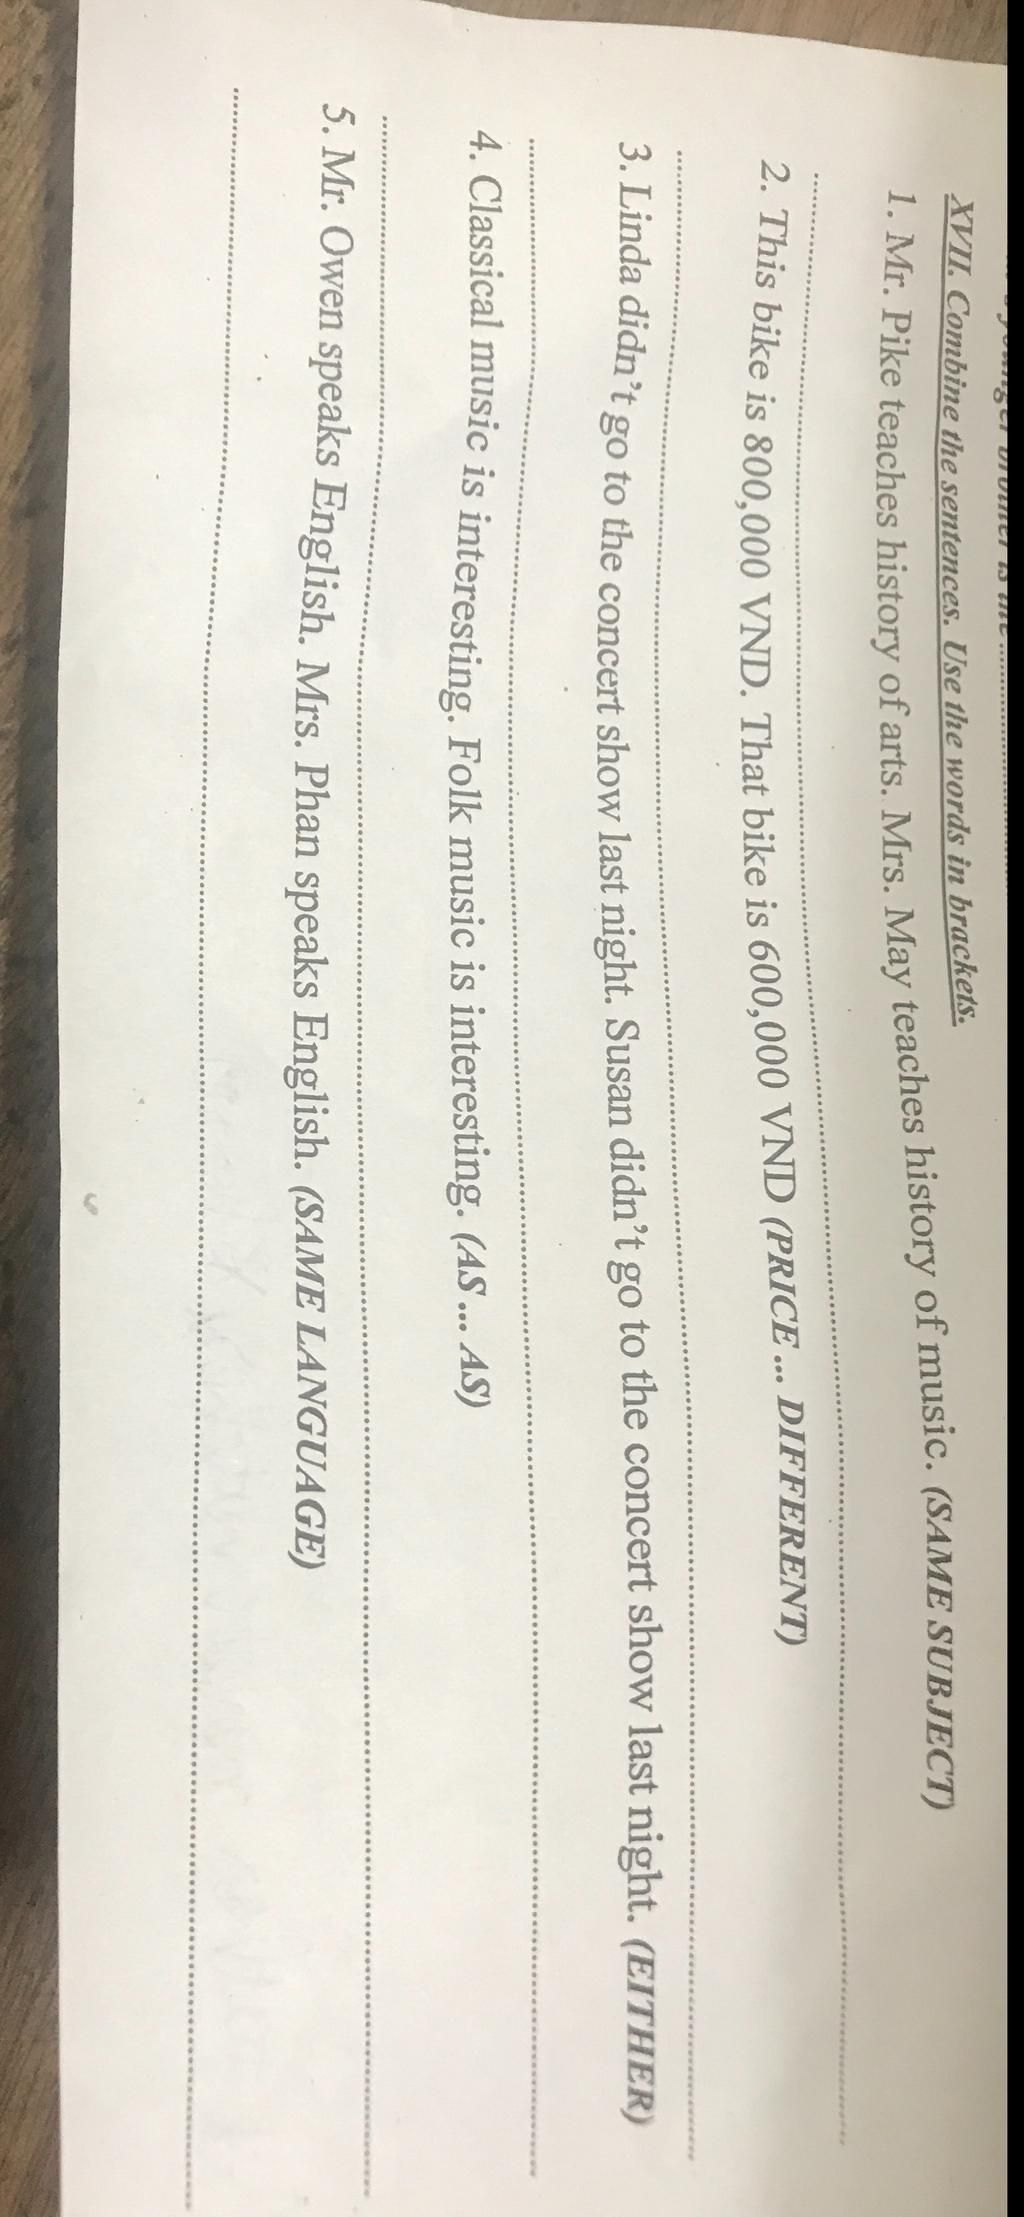 brother is the ....................
XVII. Combine the sentences. Use the words in brackets.
1. Mr. Pike teaches history of arts. Mrs. May teaches history of music. (SAME SUBJECT)
2. This bike is 800,000 VND. That bike is 600,000 VND (PRICE ... DIFFERENT)
3. Linda didn't go to the concert show last night. Susan didn't go to the concert show last night. (EITHER)
4. Classical music is interesting. Folk music is interesting. (AS ... AS)
5. Mr. Owen speaks English. Mrs. Phan speaks English. (SAME LANGUAGE)